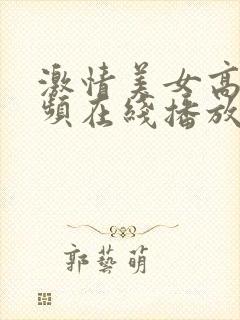 激情美女高
頻在綫播放
郭藝萌